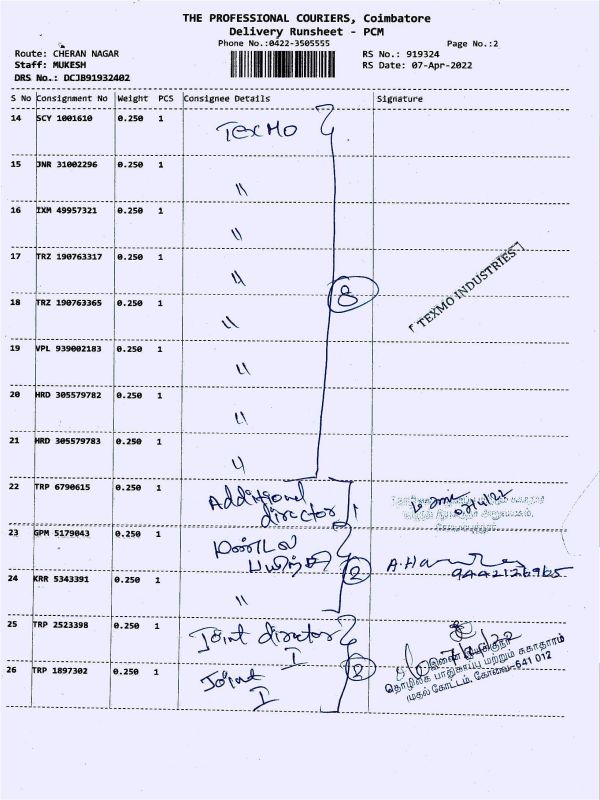 THE PROFESSIONAL COURIERS, Coimbatore
Delivery Runsheet - PCM
Phone No.:0422-3505555
Page No.:2
Route: CHERAN NAGAR
RS No.: 919324
Staff: MUKESH
RS Date: 07-Apr-2022
DRS No.: DCJB91932402
S No Consignment No Weight PCS Consignee Details Signature
14 SCY 1001610 0.250 1 TEXMO
15 JNR 31002296 0.250 1 "
16 IXM 49957321 0.250 1 "
17 TRZ 190763317 0.250 1 "
8
TEXMO INDUSTRIES
18 TRZ 190763365 0.250 1 "
19 VPL 939002183 0.250 1 "
20 HRD 305579782 0.250 1 "
21 HRD 305579783 0.250 1 "
22 TRP 6790615 0.250 1 Additional
director 1
23 GPM 5179043 0.250 1 மண்டல
2
9442126965
24 KRR 5343391 0.250 1 "
25 TRP 2523398 0.250 1 Joint director
I
26 TRP 1897302 0.250 1 Joint
I
2
இணை இயக்குநர்
தொழிலக பாதுகாப்பு மற்றும் சுகாதாரம்
(முதல் கோட்டம், கோவை-641 012